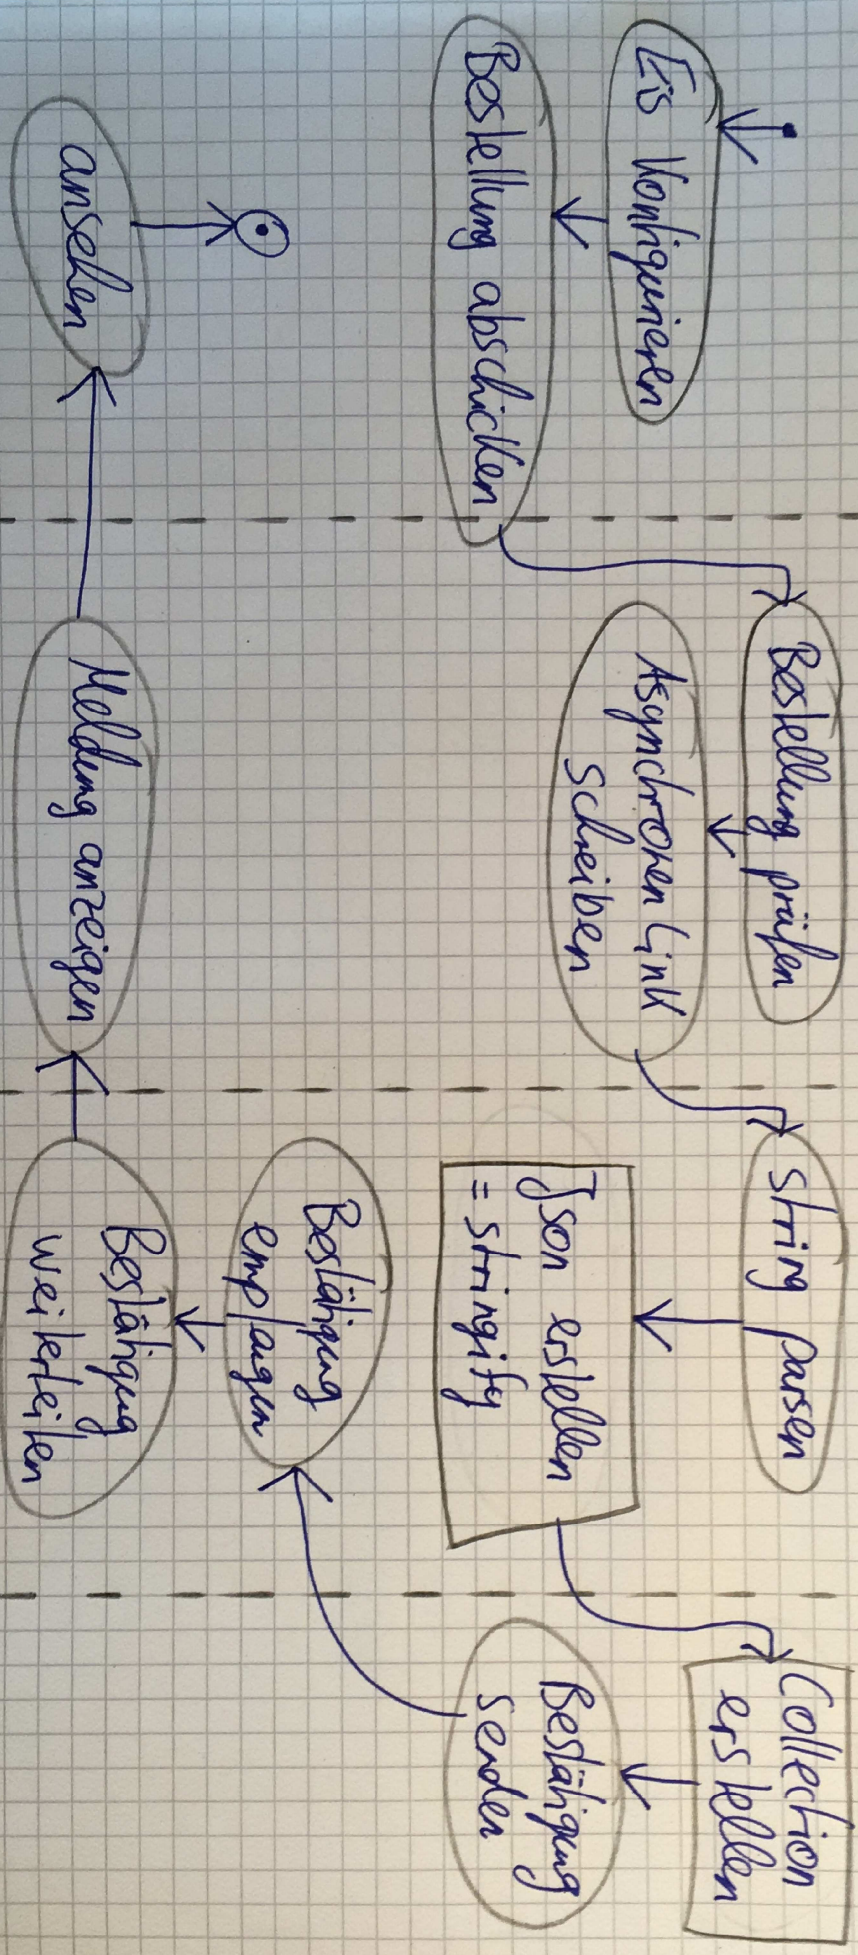 Eis konfigurieren
Bestellung abschicken
ansehen
Bestellung prüfen
Asynchronen Link
schreiben
Meldung anzeigen
string parsen
Json erstellen
= stringify
Bestätigung
empfangen
Bestätigung
weiterleiten
Collection
erstellen
Bestätigung
senden